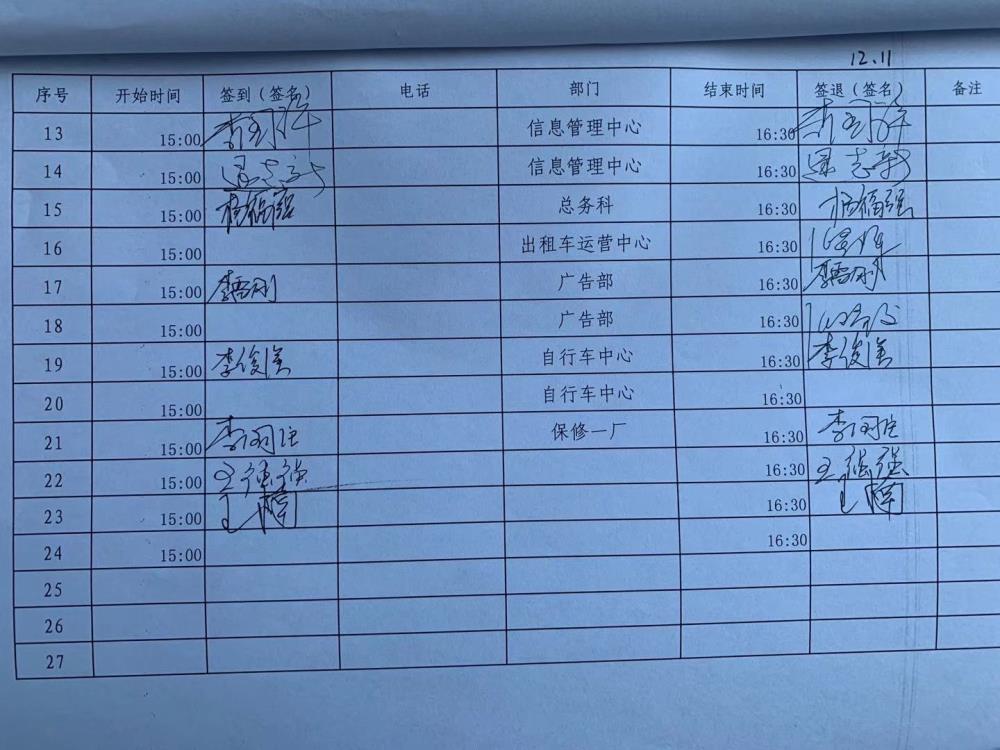 12.11
序号 开始时间 签到（签名） 电话 部门 结束时间 签退（签名） 备注
13 15:00 信息管理中心 16:30
14 15:00 信息管理中心 16:30
15 15:00 杨福强 总务科 16:30 杨福强
16 15:00 出租车运营中心 16:30
17 15:00 广告部 16:30
18 15:00 广告部 16:30
19 15:00 李俊 自行车中心 16:30 李俊
20 15:00 自行车中心 16:30
21 15:00 李 保修一厂 16:30 李
22 15:00 王 强 16:30 王 强
23 15:00 王 16:30 王
24 15:00 16:30
25
26
27